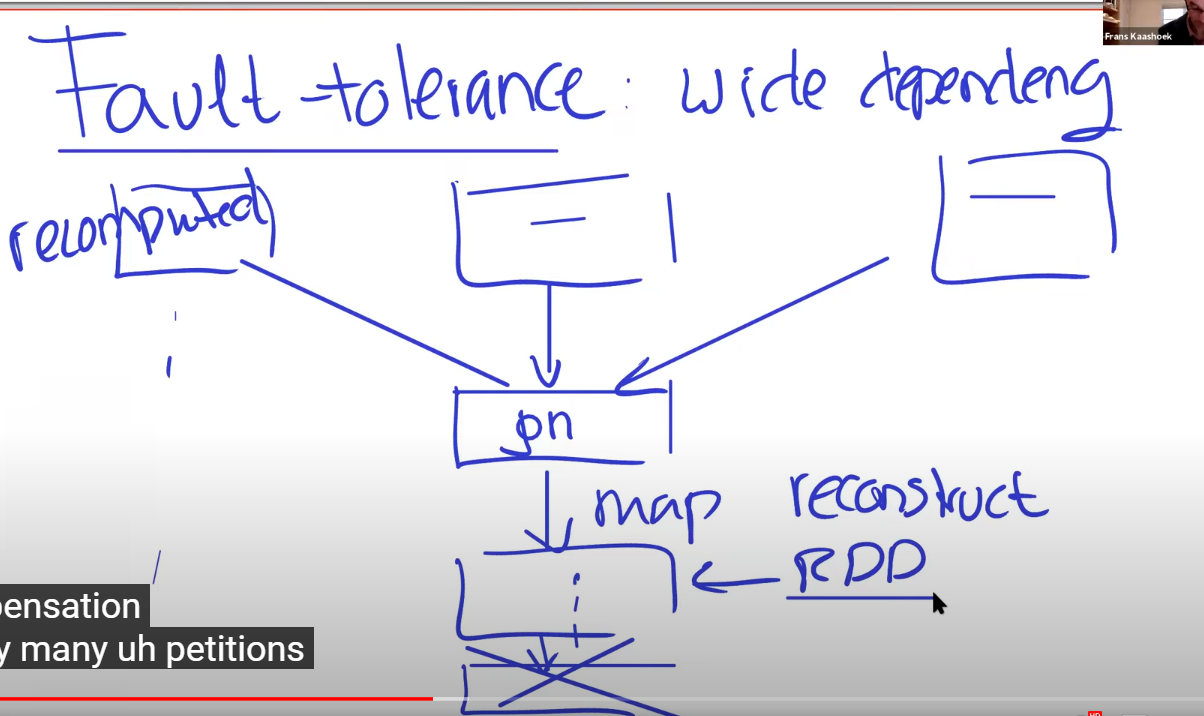 Frans Kaashoek
Fault-tolerance: wide dependency
recomputed
join
map
reconstruct
RDD
pensation
y many uh petitions
HD